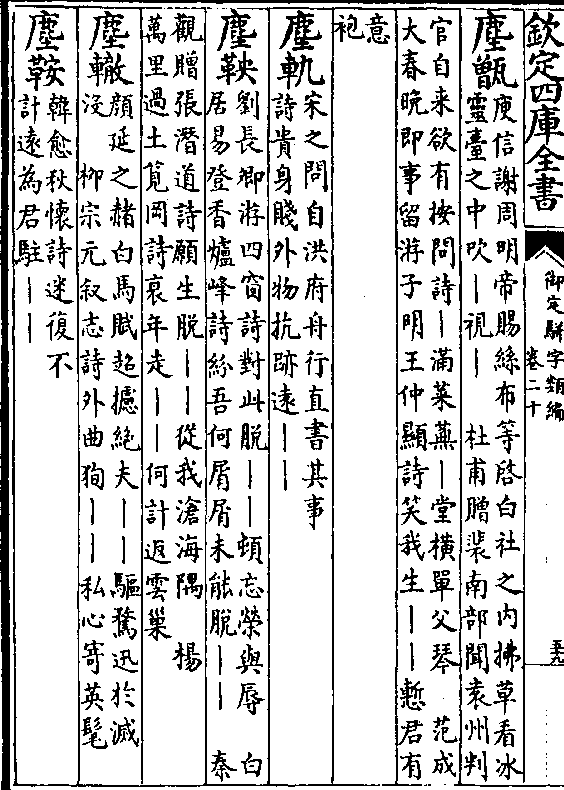 欽定四庫全書
御定駢字類編
卷二十
五九
塵甑庾信謝周明帝賜絲布等啓白社之内拂草看冰
靈臺之中吹｜視｜　杜甫贈裴南部聞袁州判
官自来欲有按問詩｜滿萊蕪｜堂橫單父琴　范成
大春晚即事留游子明王仲顯詩笑我生｜｜慙君有
意
袍
塵軌宋之問自洪府舟行直書其事
詩貴身賤外物抗跡逺｜｜
塵鞅劉長卿游四窗詩對此脱｜｜頓忘榮與辱　白
居易登香爐峰詩紛吾何屑屑未能脱｜｜　秦
觀贈張潛道詩願生脱｜｜從我滄海隅　楊
萬里過土筧岡詩哀年走｜｜何計返雲巢
塵轍顔延之赭白馬賦超攄絶夫｜｜驅騖迅於滅
沒　柳宗元叙志詩外曲徇｜｜私心寄英髦
塵鞍韓愈秋懷詩迷復不
計逺為君駐｜｜